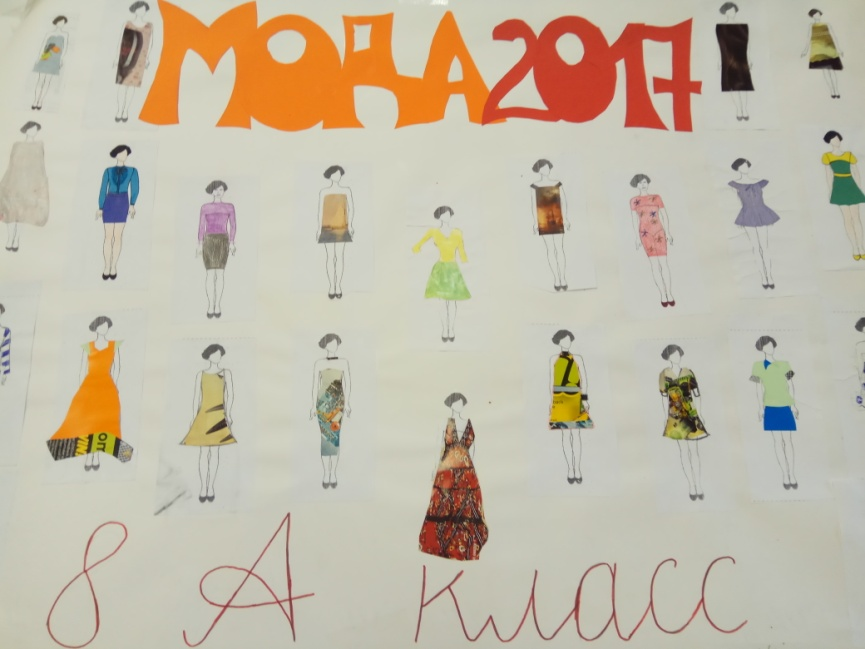 МОДА 2017
8 А класс